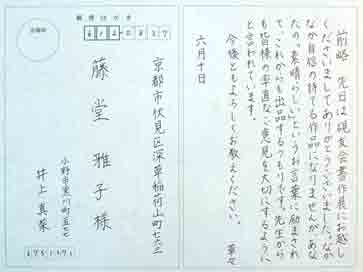 郵便はがき
612-0817
京都市伏見区深草稲荷山町七六二
藤堂 雅子様
小野市黒川町五七
井上真菜
前略 先日は硯友会書作展にお越し
くださいましてありがとうございました。なか
なか自信の持てる作品になりませんがあな
たの「素晴らしい」というお言葉に励まされ
て、これからも出品するつもりです。先生から
も皆様の率直なご意見を大切にするように
と言われています。
今後ともよろしくお教えください。 草々
六月十日